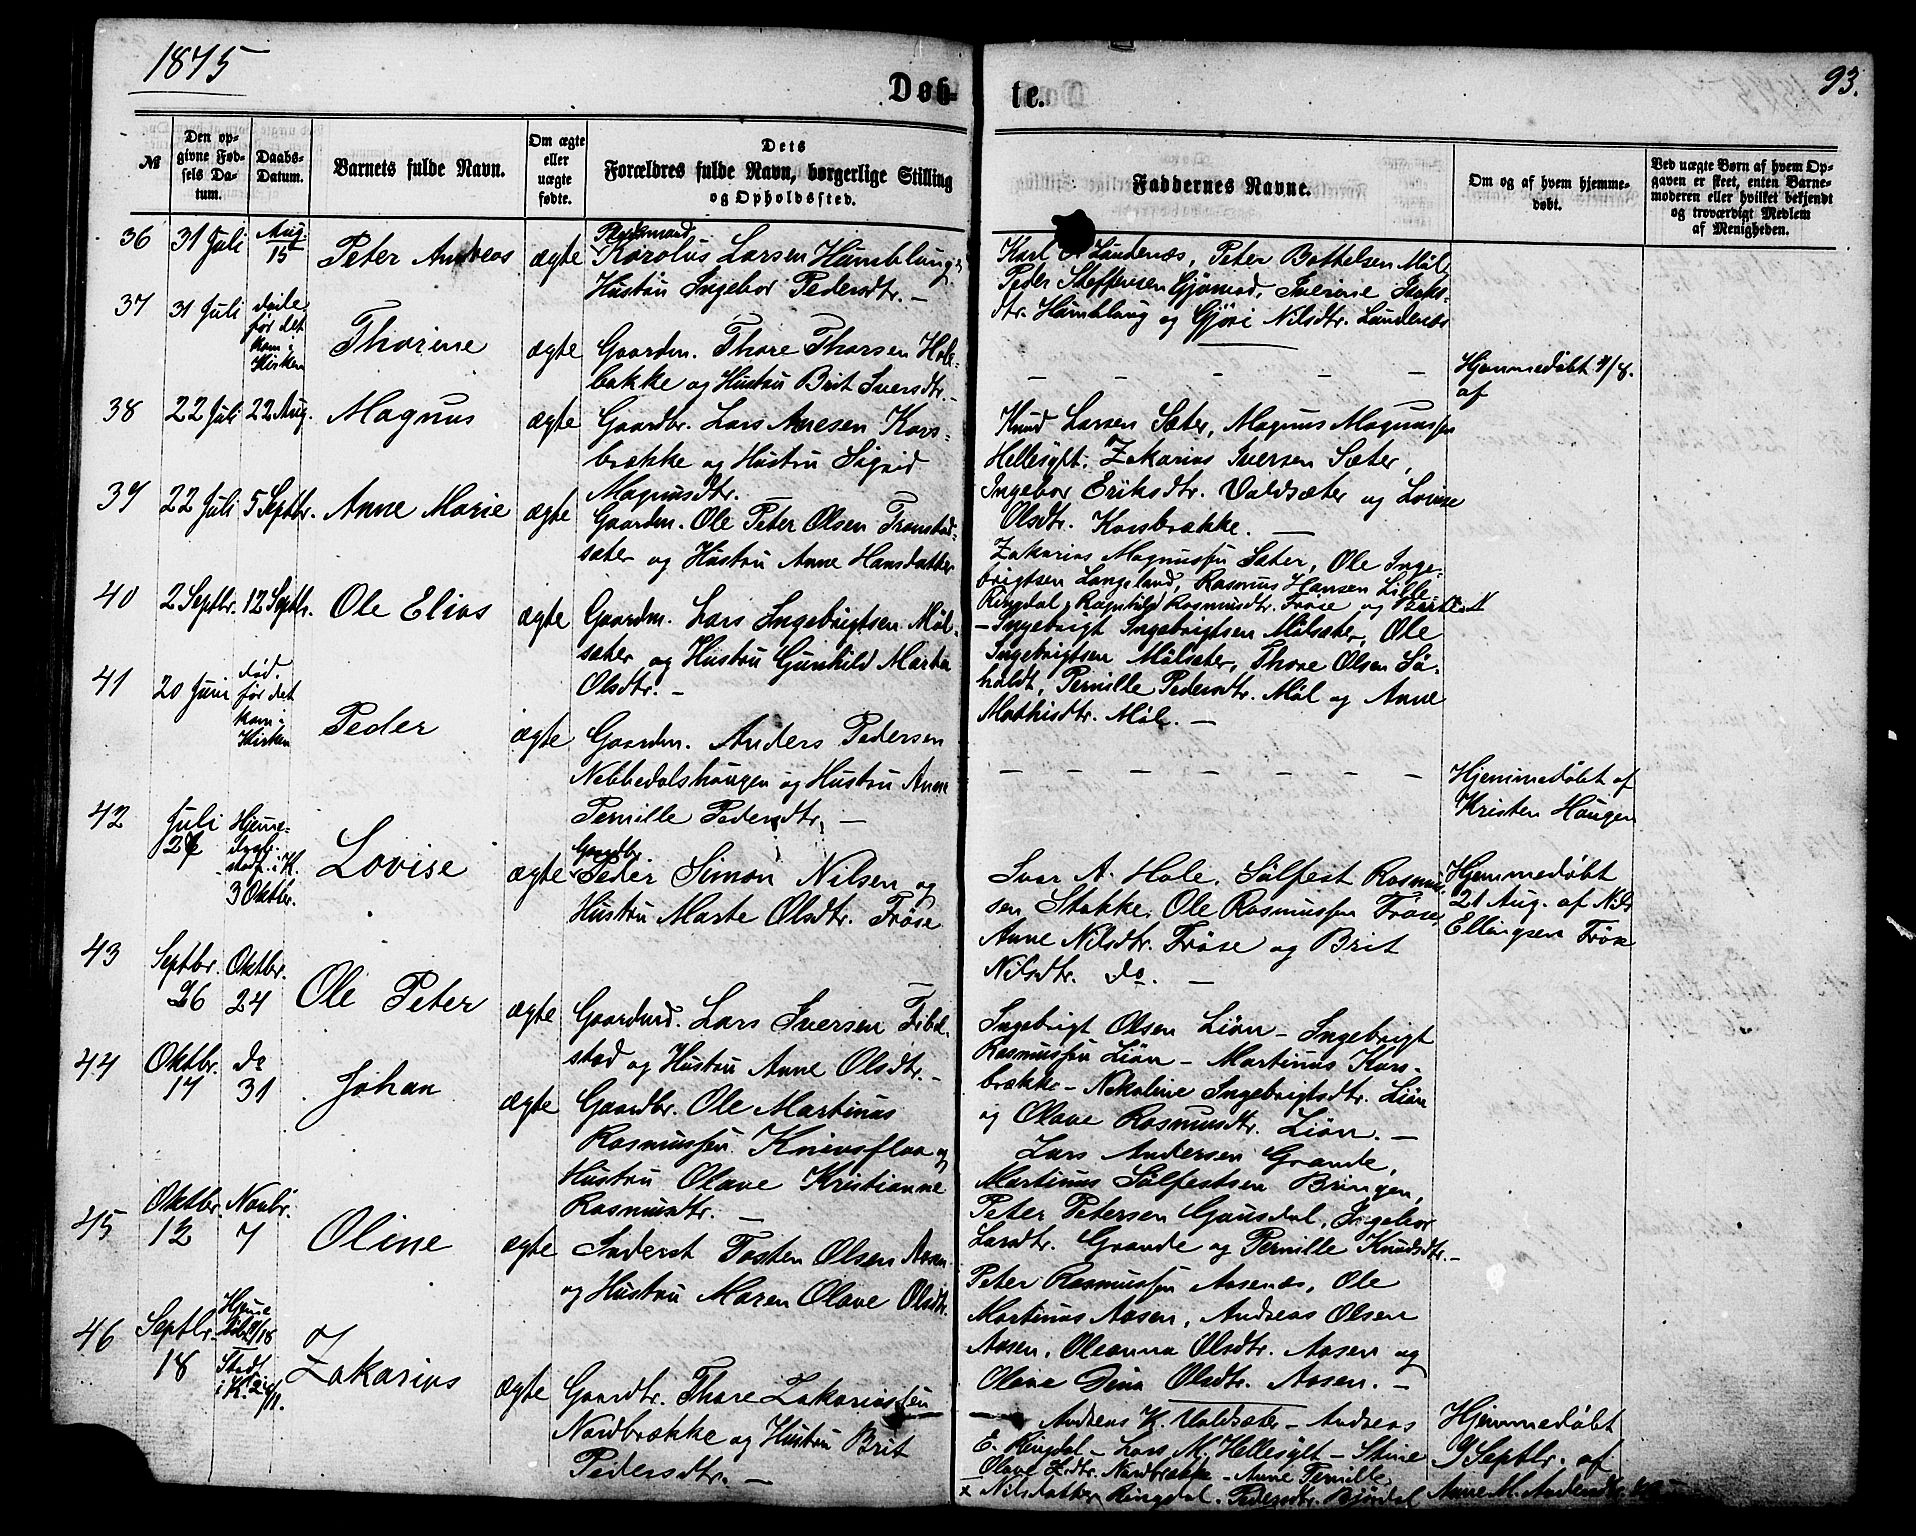 1875
Døb-
te.
93.
№
Den op-
givne Fød-
sels Da-
tum.
Daabs-
Datum.
Barnets fulde Navn.
Om ægte
eller
uægte
fødte.
Dets
Forældres fulde Navn, borgerlige Stilling
og Opholdssted.
Faddernes Navne.
Om og af hvem hjemme-
døbt.
Ved uægte Børn af hvem Op-
gaven er skeet, enten Barne-
moderen eller hvilket bekjendt
og troværdigt Medlem
af Menigheden.
36 31 Juli Aug. 15 Peter Andreas ægte
Karolus Larsen Hamblaug
Hustru Ingebor Pedersdtr. —
Karl Landenæs, Peter Bottelsen Møl
Peder Steffensen Gjørend, Sverine
dtr. Hamblaug og Gjøri Nilsdtr. Landenæs
37 31 Juli døde før det kom i Kirken Thorine ægte
Gaardm. Thore Thorsen Hole-
bakke og Hustru Brit Iversdtr. —
— — — — — —
Hjemmedøbt /8.
af
38 22 Juli 22 Aug. Magnus ægte
Gaardbr. Lars Anesen Kors-
brække og Hustru Sigrid
Magnusdtr.
Knud Larsen Sæter, Magnus Magnussen
Hellesylt, Zakarias Iversen Sæter,
Ingebor Eriksdtr. Valdsæter og Lovise
Olsdtr. Korsbrække. —
39 22 Juli 5 Septbr. Anne Marie ægte
Gaardm. Ole Peter Olsen Tramstad-
sæter og Hustru Anne Hansdatter
Zakarias Magnussen Sæter, Ole Inge-
brigtsen Langeland, Rasmus Hansen Lille
Ringdal, Ragnhild Rasmusdtr. Frøse og
40 2 Septbr. 12 Septbr. Ole Elias ægte
Gaardm. Lars Ingebrigtsen Møl-
sæter og Hustru Gunhild Marta
Olsdtr. —
— Ingebrigt Ingebrigtsen Mølsæter, Ole
Ingebrigtsen Mølsæter, Thore Olsen Sø-
holdt, Pernille Pedersdtr. Møl og Anne
Mathisdtr. Møl. —
41 20 Juni død. før det kom i Kirken Peder ægte
Gaardm. Anders Pedersen
Nebbedalshaugen og Hustru Anne
Pernille Pedersdtr. —
— — — — — — —
Hjemmedøbt af
Kristen Haugen
42 Juli Hjeme- 3 Oktbr. Lovise ægte
Gaardbr.
Peder Simon Nilsen og
Hustru Marte Olsdtr. Frøse
Ivar A. Hole, Sølfest Rasmus-
sen Stakke, Ole Rasmussen Frøse,
Anne Nilsdtr. Frøse og Brit
Nilsdtr. do. —
Hjemmedøbt
21 Aug. af Nils
Ellingsen Frøse
43 Septbr. 26 Oktbr. 24 Ole Peter ægte
Gaardmd. Lars Iversen Fibel-
stad og Hustru Anne Olsdtr. —
Ingebrigt Olsen Liøn — Ingebrigt
Rasmussen Liøn — Martinus Kors-
brække — Nekoline Ingebrigtsdtr. Liøn
og Olave Rasmusdtr. Liøn. —
44 Oktbr. 17 do 31 Johan ægte
Gaardbr. Ole Martinus
Rasmussen Knivsflaa og
Hustru Olave Kristianne
Rasmusdtr. —
Lars Andersen Grande,
Martinus Sølfestsen Bringen,
Peter Petersen Gausdal, Ingebor
Larsdtr. Grande og Pernille Knudsdtr. —
45 Oktbr. 12 Novbr. 7 Oline ægte
Inderst Tosten Olsen Aasen
og Hustru Maren Olave Olsdtr.
Peter Rasmussen Aasenæs, Ole
Martinus Aasen, Andreas Olsen
Aasen, Oleanna Olsdtr. Aasen og
Olave Dina Olsdtr. Aasen. —
46 Septbr. 18 Stadf. i K. Zakarias ægte
Gaardbr. Thore Zakariassen
Nordbrække og Hustru Brit
Pedersdtr. —
Andreas K. Valdsæter — Andreas
E. Ringdal — Lars M. Hellesylt — Stine
Olave Nordbrække — Anne Pernille
× Nilsdatter Ringdal. Pedersdtr. Bjørdal
Hjemmedøbt
9 Septbr. af
Anne M. Andersdtr.